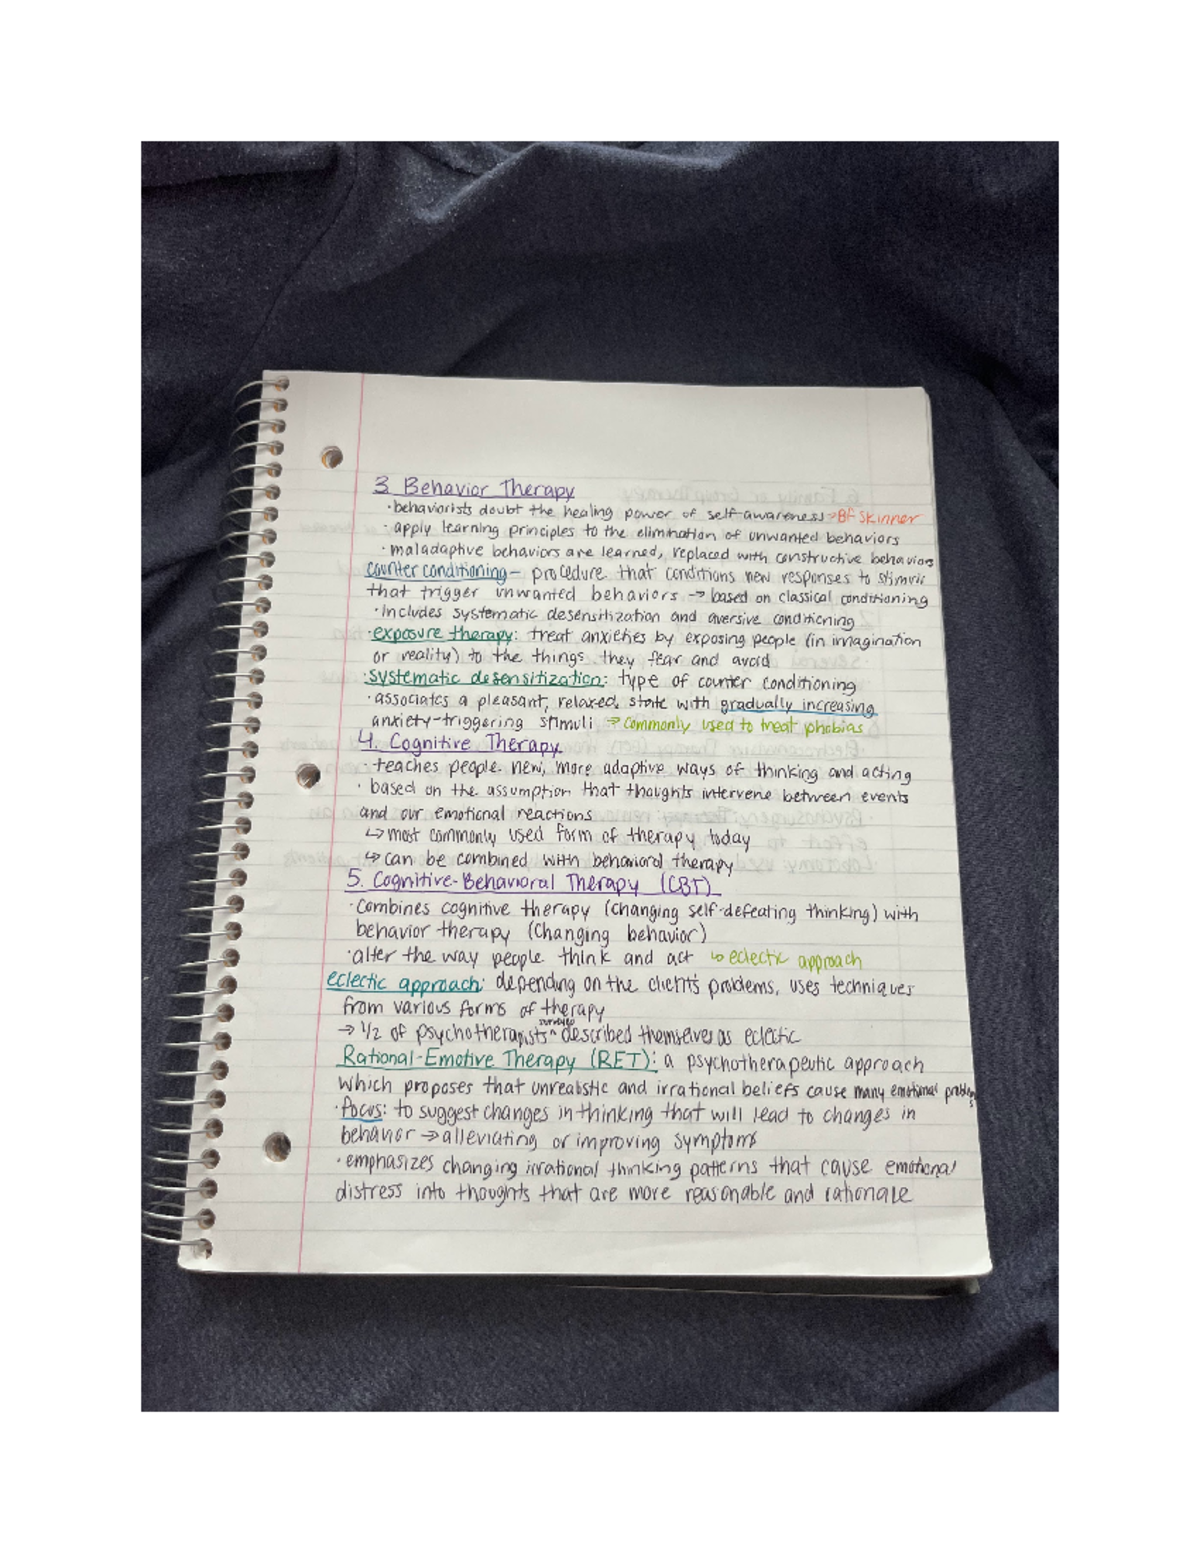 3. Behavior Therapy
·behaviorists doubt the healing power of self-awareness→BF Skinner
· apply learning principles to the elimination of unwanted behaviors
· maladaptive behaviors are learned, replaced with constructive behaviors
counter conditioning- procedure that conditions new responses to stimuli
that trigger unwanted behaviors → based on classical conditioning
·Includes systematic desensitization and aversive conditioning
·exposure therapy: treat anxieties by exposing people (in imagination
or reality) to the things they fear and avoid
·systematic desensitization: type of counter conditioning
·associates a pleasant, relaxed state with gradually increasing
anxiety-triggering stimuli → commonly used to treat phobias
4. Cognitive Therapy
·teaches people new, more adaptive ways of thinking and acting
· based on the assumption that thoughts intervene between events
and our emotional reactions
↳ most commonly used form of therapy today
↳ can be combined with behavioral therapy
5. Cognitive-Behavioral Therapy (CBT)
·Combines cognitive therapy (changing self-defeating thinking) with
behavior therapy (Changing behavior)
·alter the way people think and act ↳ eclectic approach
eclectic approach: depending on the client's problems, uses techniques
from various forms of therapy
→ 1/2 of psychotherapists ^ described themselves as eclectic
Rational-Emotive Therapy (RET): a psychotherapeutic approach
which proposes that unrealistic and irrational beliefs cause many emotional problems
·focus: to suggest changes in thinking that will lead to changes in
behavior → alleviating or improving symptoms
·emphasizes changing irrational thinking patterns that cause emotional
distress into thoughts that are more reasonable and rationale